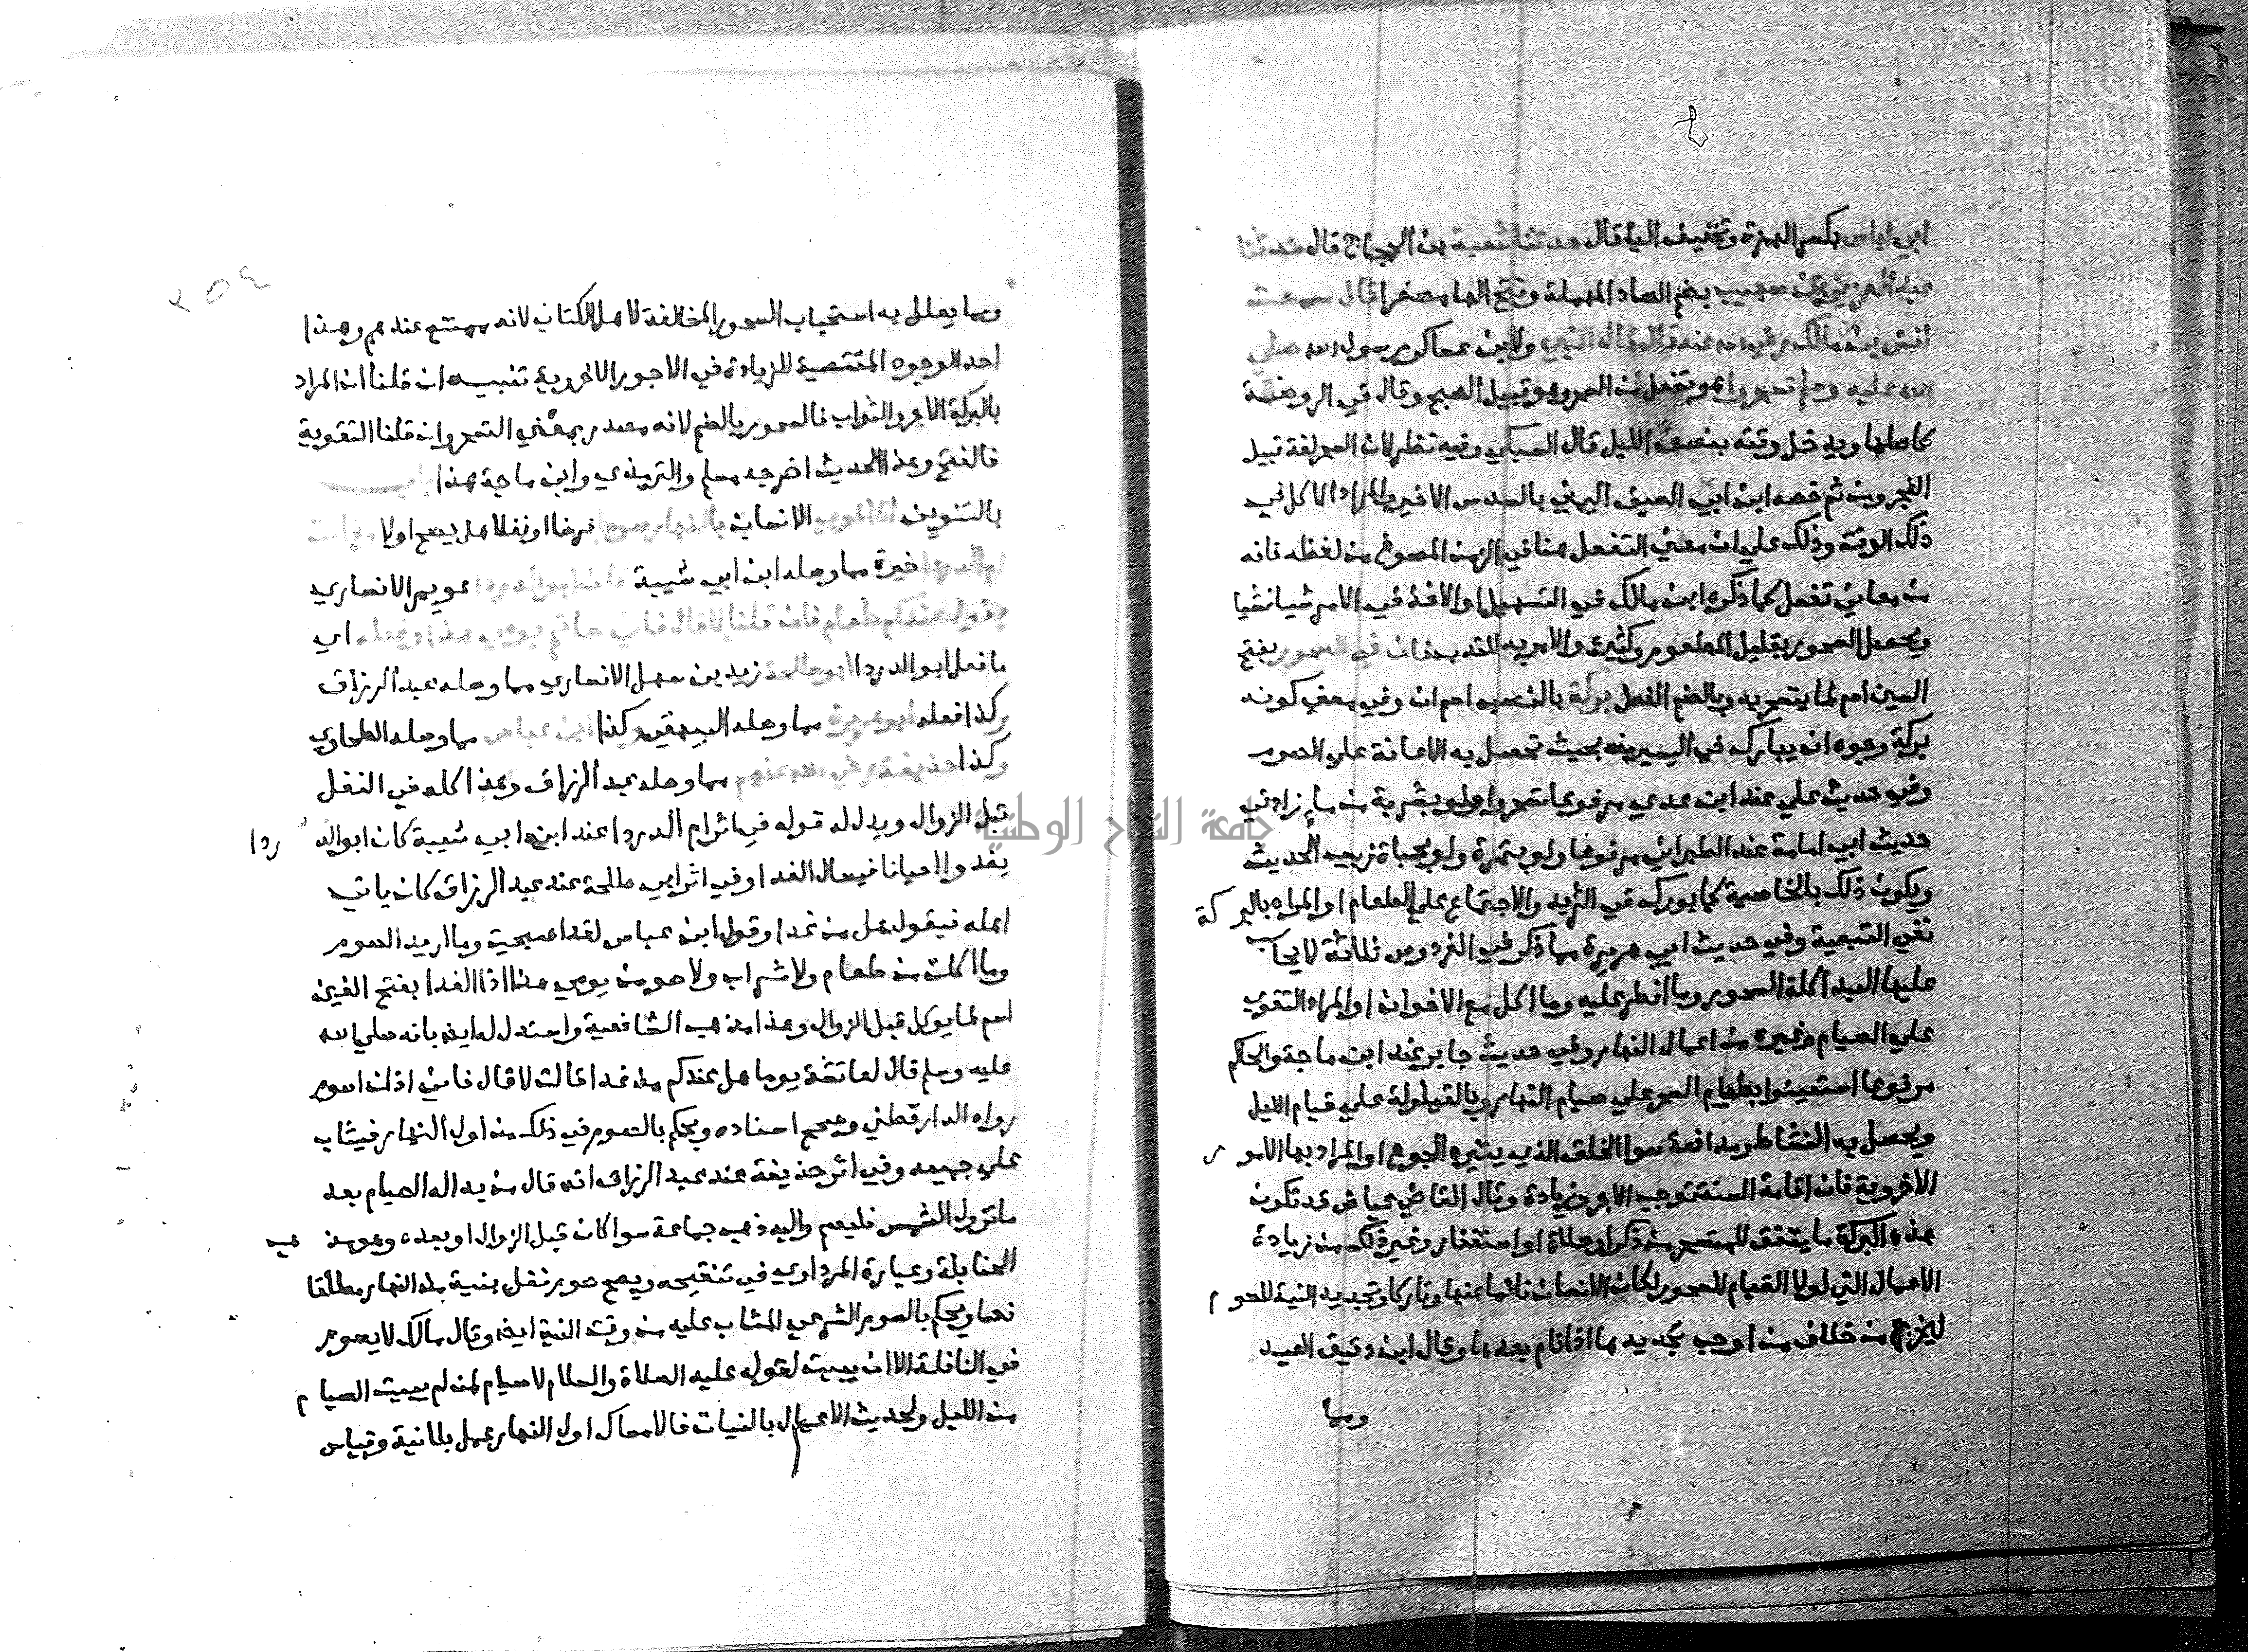 ابي اياس بكسر الهمزة وتخفيف اليا قال حدثنا شعبة بن الحجاج قال حدثنا
عبد العزيز بن صهيب بضم الصاد المهملة وفتح الها مصغرا قال سمعت
انس بن مالك رضي الله عنه قال قال النبي ولابن عساكر رسول الله صلي
الله عليه وسلم تسحروا هو تفعل من السحر وهو قبيل الصبح وقال في الروضة
كاصلها ويدخل وقته بنصف الليل قال السبكي وفيه نظر لان السحر لغة قبيل
الفجر ومن ثم خصه ابن ابي الصيف اليمني بالسدس الاخير والمراد الاكل في
ذلك الوقت وذلك علي ان معني التفعل هنا في الزمن المصوغ من لفظه فانه
من معاني تفعل كما ذكره ابن مالك في التسهيل او الاخذ في الامر شيا فشيا
ويحصل السحور بقليل المطعوم وكثيره والامر به للندب فان في السحور بفتح
السين اسم لما يتسحر به وبالضم الفعل بركة بالنصب اسم ان وفي معني كونه
بركة وجوه ان يبارك في اليسير منه بحيث تحصل به الاعانة علي الصوم
وفي حديث علي عند ابن عدي مرفوعا تسحروا ولو بشربة من ما زاد في
حديث ابي امامة عند الطبراني مرفوعا ولو بتمرة ولو بحبات زبيب الحديث
ويكون ذلك بالخاصية كما بورك في الثريد والاجتماع علي الطعام او المراد بالبركة
نفي التبعية وفي حديث ابي هريرة مما ذكر في الفردوس ثلاثة لا يحاسب
عليها العبد اكلة السحور وما افطر عليه وما اكل مع الاخوان او المراد التقوي
علي الصيام وغيره من اعمال النهار وفي حديث جابر عند ابن ماجة والحاكم
مرفوعا استعينوا بطعام السحر علي صيام النهار وبالقيلولة علي قيام الليل
ويحصل به النشاط ومدافعة سوا الخلق الذي يثيره الجوع او المراد بها الامور
الاخروية فان اقامة السنة توجب الاجر وزيادة وقال القاضي عياض قد تكون
هذه البركة ما يتفق للمتسحر من ذكر او صلاة او استغفار وغير ذلك من زيادة
الاعمال التي لولا القيام للسحور لكان الانسان نائما عنها وتاركا وتجديد النية للصوم
ليخرج من خلاف من اوجب تجديدها اذا نام بعدها وقال ابن دقيق العيد
ومما
٢٥٤
ومما يعلل به استحباب السحور المخالفة لاهل الكتاب لانه ممتنع عندهم وهذا
احد الوجوه المقتضية للزيادة في الاجور الاخروية تنبيه ان قلنا ان المراد
بالبركة الاجر والثواب فالسحور بالضم لانه مصدر بمعني التسحر وان قلنا التقوية
فالفتح وهذا الحديث اخرجه مسلم والترمذي وابن ماجة هذا باب
بالتنوين اذا نوي الانسان بالنهار صوما فرضا او نفلا هل يصح او لا وقالت
ام الدردا خيرة مما وصله ابن ابي شيبة كان ابو الدردا عويمر الانصاري
يقول عندكم طعام فان قلنا لا قال فاني صائم يومي هذا وفعله اي
ما فعل ابو الدردا ابو طلحة زيد بن سهل الانصاري مما وصله عبد الرزاق
وكذا فعله ابو هريرة مما وصله البيهقي وكذا ابن عباس مما وصله الطحاوي
وكذا حذيفة رضي الله عنهم مما وصله عبد الرزاق وهذا كله في النفل
قبل الزوال ويدل له قوله في اثر ام الدردا عند ابن ابي شيبة كان ابو الدردا
يغدو احيانا فيسال الغدا وفي اثر ابي طلحة عند عبد الرزاق كان ياتي
اهله فيقول هل من غدا وقول ابن عباس لقد اصبحت وما اريد الصوم
وما اكلت من طعام ولا شراب ولاصومن يومي هذا اذ الغدا بفتح الغين
اسم لما يوكل قبل الزوال وهذا مذهب الشافعية واستدل له ايضا بانه صلي الله
عليه وسلم قال لعائشة يوما هل عندكم من غدا قالت لا قال فاني اذن اصوم
رواه الدارقطني وصحح اسناده ويحكم بالصوم في ذلك من اول النهار فيثاب
علي جميعه وفي اثر حذيفة عند عبد الرزاق انه قال من بدا له الصيام بعد
ما تزول الشمس فليصم واليه ذهب جماعة سوا كان قبل الزوال او بعده وهو مذهب
الحنابلة وعبارة المرداوي في تنقيحه ويصح صوم نفل بنية من النهار مطلقا
نصا ويحكم بالصوم الشرعي المثاب عليه من وقت النية ايضا وقال مالك لا يصوم
في النافلة الا ان يبيت لقوله عليه الصلاة والسلام لا صيام لمن لم يبيت الصيام
من الليل ولحديث الاعمال بالنيات فالامساك اول النهار عمل بلا نية وقياس
جامعة النجاح الوطنية